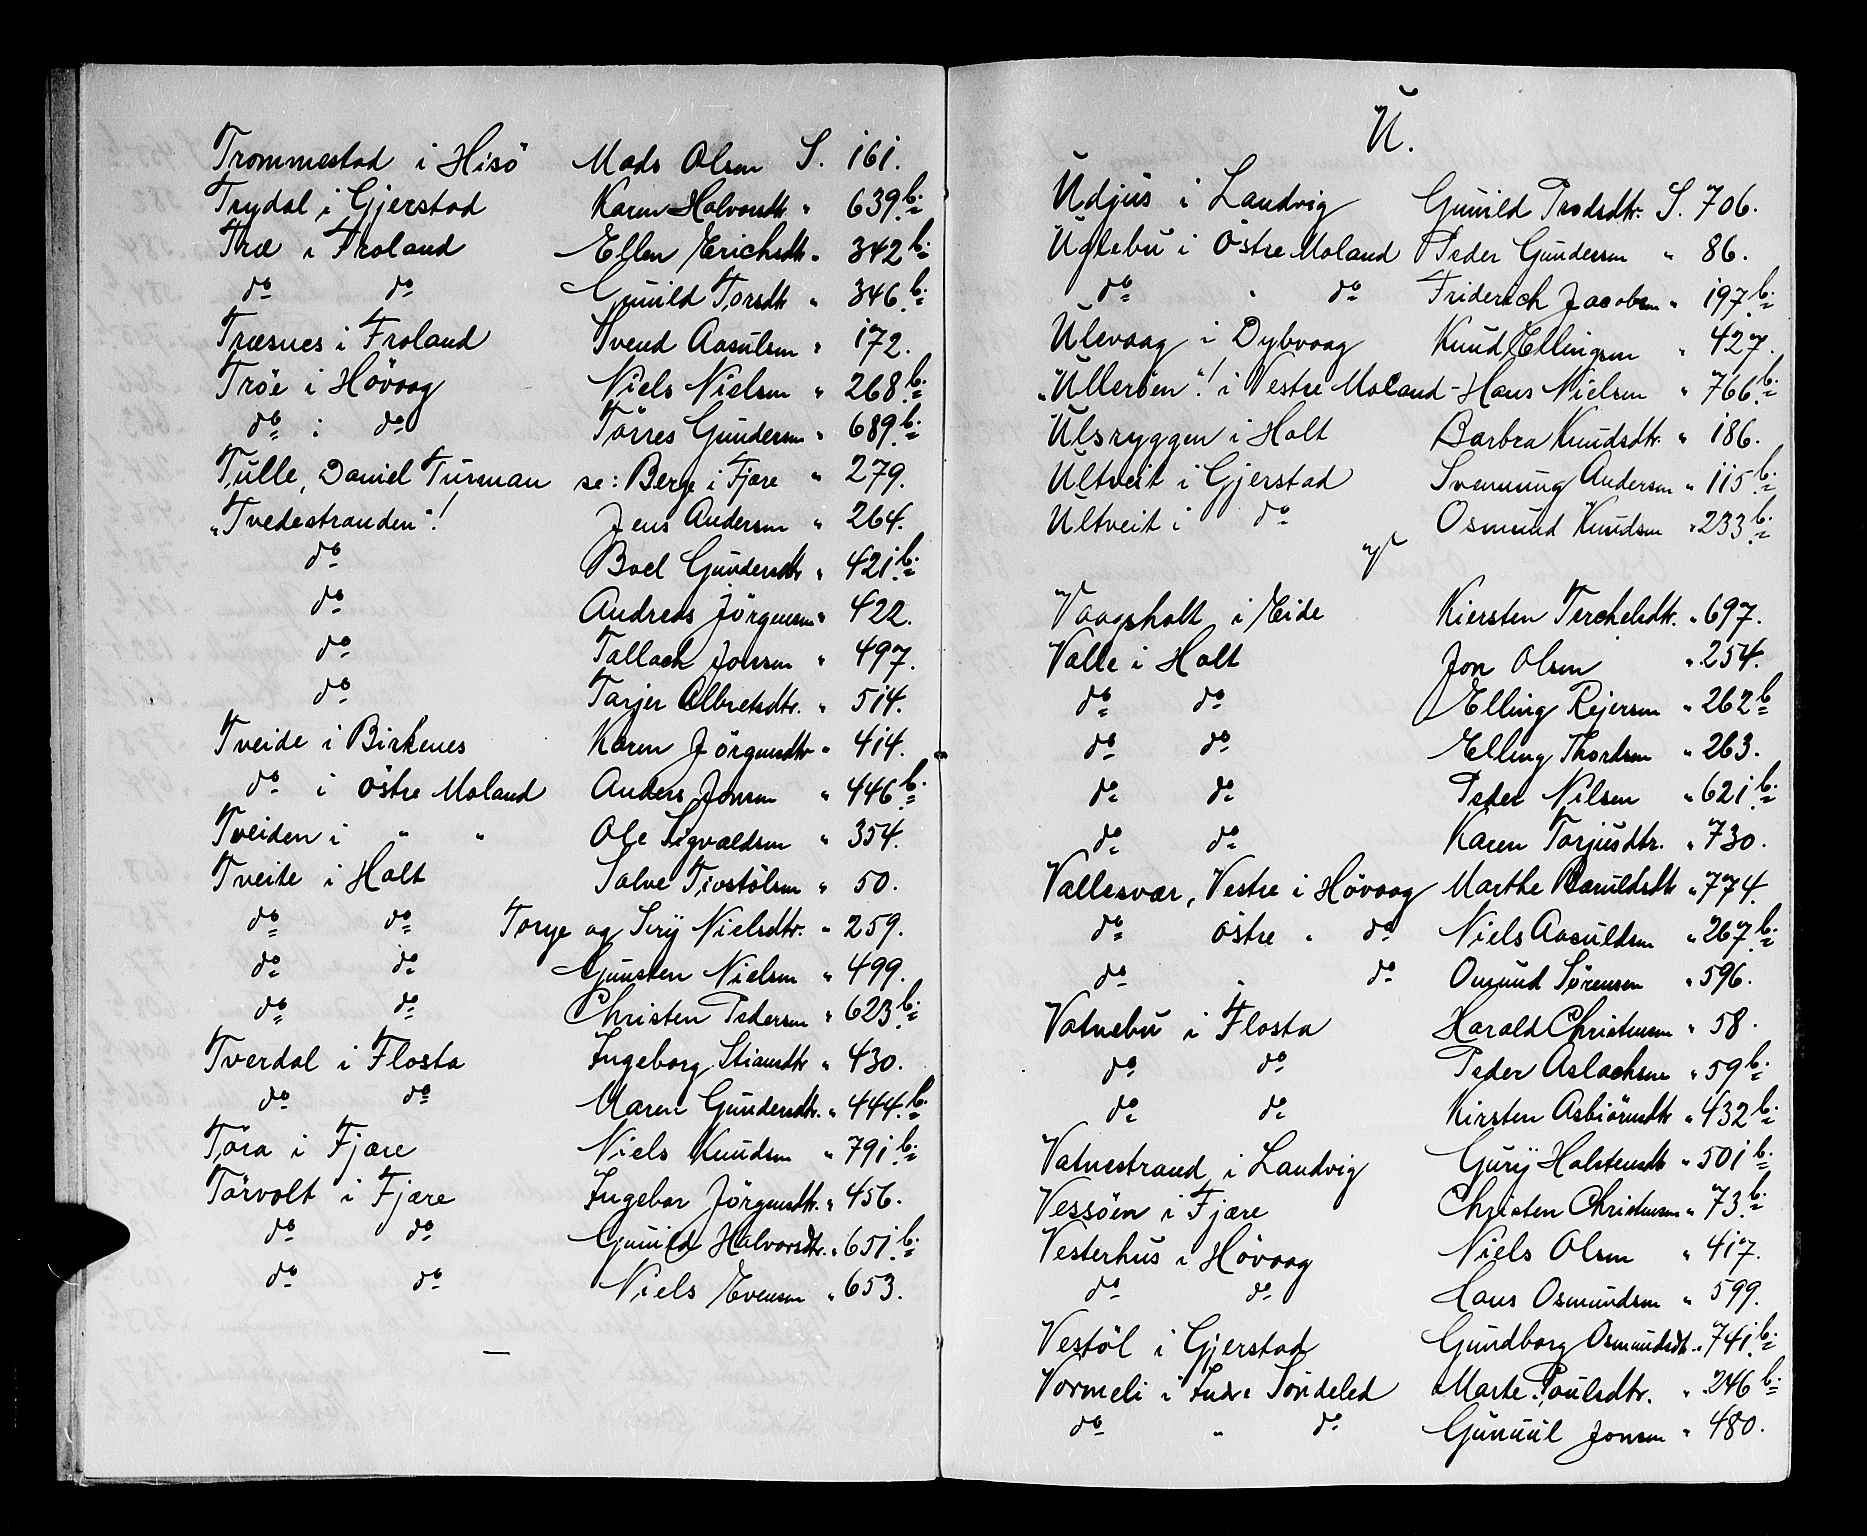 Trommestad i Hisö Mads Olsen S. 161.
Trydal i Gjerstad Karen Halvorsdtr. " 639.b.
Træ i Froland Ellen Erichsdtr. " 342 b.
do do Gunild Torsdtr " 346.b.
Træsnes i Froland Svend Aasulsen " 172.
Tröe i Hövaag Niels Nielsen " 268.b.
do : do Törres Gundersen " 689.b.
Tulle, Daniel Turman se: Berge i Fjære " 279.
"Tvedestranden"! Jens Andersen " 264.
do Boel Gundersdtr " 421.b.
do Andreas Jörgensen " 422.
do Tallach Jonsen " 497.
do Tarjer Albretsdtr. " 514.
Tveide i Birkenes Karen Jörgensdtr " 414.
do i östre Moland Anders Jonsen " 446.b.
Tveiden i " " Ole Sigvaldsen " 354.
Tveite i Holt Salve Tivstölsen " 50.
do do Torge og Sirij Nielsdtr. " 259.
do do Gunsten Nielsen " 499.
do do Christen Pedersen " 623.b.
Tverdal i Flosta Ingeborg Stiansdtr " 430.
do do Maren Gundersdtr. " 444.b.
Töra i Fjære Niels Knudsen " 791.b.
Törvolt i Fjære Ingebor Jörgensdtr. " 456.
do do Gunild Halvorsdtr. " 651.b.
do do Niels Evensen " 653.
—
U.
Udjus i Landvig Gunild Trodsdtr. S. 706.
Uglebu i Östre Moland Peder Gundersen " 86.
do " do Friderich Jacobsen " 197.b.
Ulevaag i Dybvaag Knud Ellingsen " 427.
"Ulleröen"! i Vestre Moland - Hans Nielsen " 766.b.
Ulsryggen i Holt Barbra Knudsdtr. " 186.
Ultveit i Gjerstad Svennung Andersen " 115.b.
Ultveit i do Osmund Knudsen " 233.b.
V
Vaagsholt i Eide Kiersten Terchelsdtr. " 697.
Valle i Holt Jon Olsen " 254.
do do Elling Rejersen " 262 b
do do Elling Thordsen " 263.
do do Peder Nilsen " 621.b.
do do Karen Torjusdtr. " 730.
Vallesvær, Vestre i Hövaag Marthe Baruldsdtr " 774.
do östre " do Niels Aasuldsen " 267.b.
do " do Omund Sørensen " 596.
Vatnebu i Flosta Harald Christensen " 58.
do do Peder Aslachsen " 59 b.
do do Kirsten Asbiörnsdtr " 432 b.
Vatnestrand i Landvig Gurij Halstensdtr " 501 b.
Vessöen i Fjære Christen Christensen " 73.b.
Vesterhus i Hövaag Niels Olsen " 417.
do do Hans Osmundsen " 599.
Vestöl i Gjerstad Gundborg Osmundsdtr. " 741.b.
Vormeli i Indre Söndeled Marte Poulsdtr. " 246 b.
do " do Gunuul Jonsen " 480.